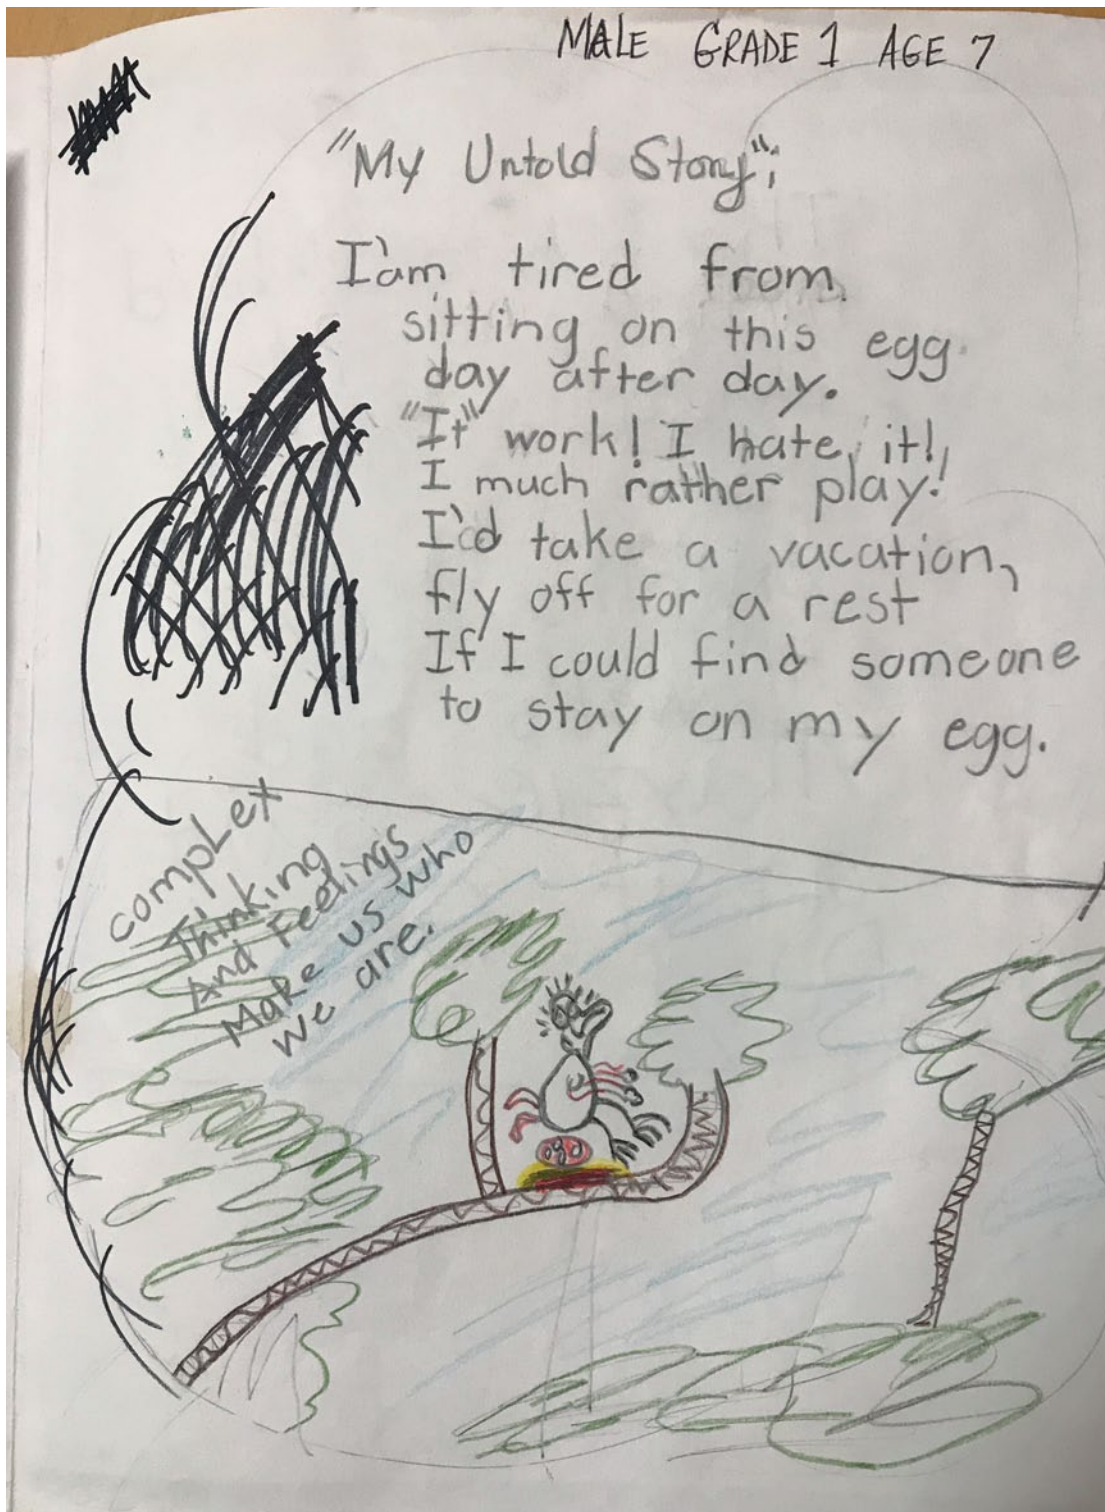 MALE GRADE 1 AGE 7
"My Untold Story";
I'am tired from
sitting on this egg
day after day.
"It" work! I hate it!
I much rather play!
I'd take a vacation,
fly off for a rest
If I could find someone
to stay on my egg.
compLex
Thinking
And Feelings
Make us who
we are.